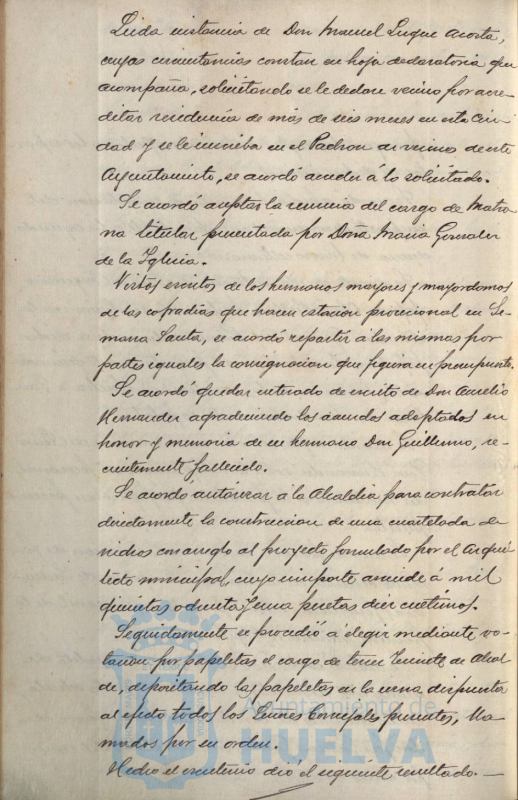 Leida instancia de Don Manuel Luque Acosta,
cuyas circunstancias constan en hoja declaratoria que
acompaña, solicitando se le declare vecino por acre-
ditar residencia de más de seis meses en esta Ciu-
dad y se le inscriba en el Padron de vecinos de este
Ayuntamiento, se acordó acceder á lo solicitado.
Se acordó aceptar la renuncia del cargo de Matro-
na titular presentada por Doña Maria Gonzalez
de la Iglesia.
Vistos escritos de los hermanos mayores y mayordomos
de las cofradías que hacen estacion procesional en Se-
mana Santa, se acordó repartir á las mismas por
partes iguales la consignacion que figura en presupuesto.
Se acordó quedar enterado de escrito de Don Aurelio
Hernandez agradeciendo los acuerdos adoptados en
honor y memoria de su hermano Don Guillermo, re-
cientemente fallecido.
Se acordó autorizar á la Alcaldia para contratar
directamente la construccion de una cuartelada de
nichos con arreglo al proyecto formulado por el Arqui-
tecto municipal, cuyo importe asciende á mil
quinientas ochenta y una pesetas diez centimos.
Seguidamente se procedió a elegir mediante vo-
tacion por papeletas el cargo de tercer Teniente de Alcal-
de, depositando las papeletas en la urna dispuesta
al efecto todos los Señores Concejales presentes, lla-
mados por su orden.
Hecho el escrutinio dió el siguiente resultado.—
Ayuntamiento de
HUELVA